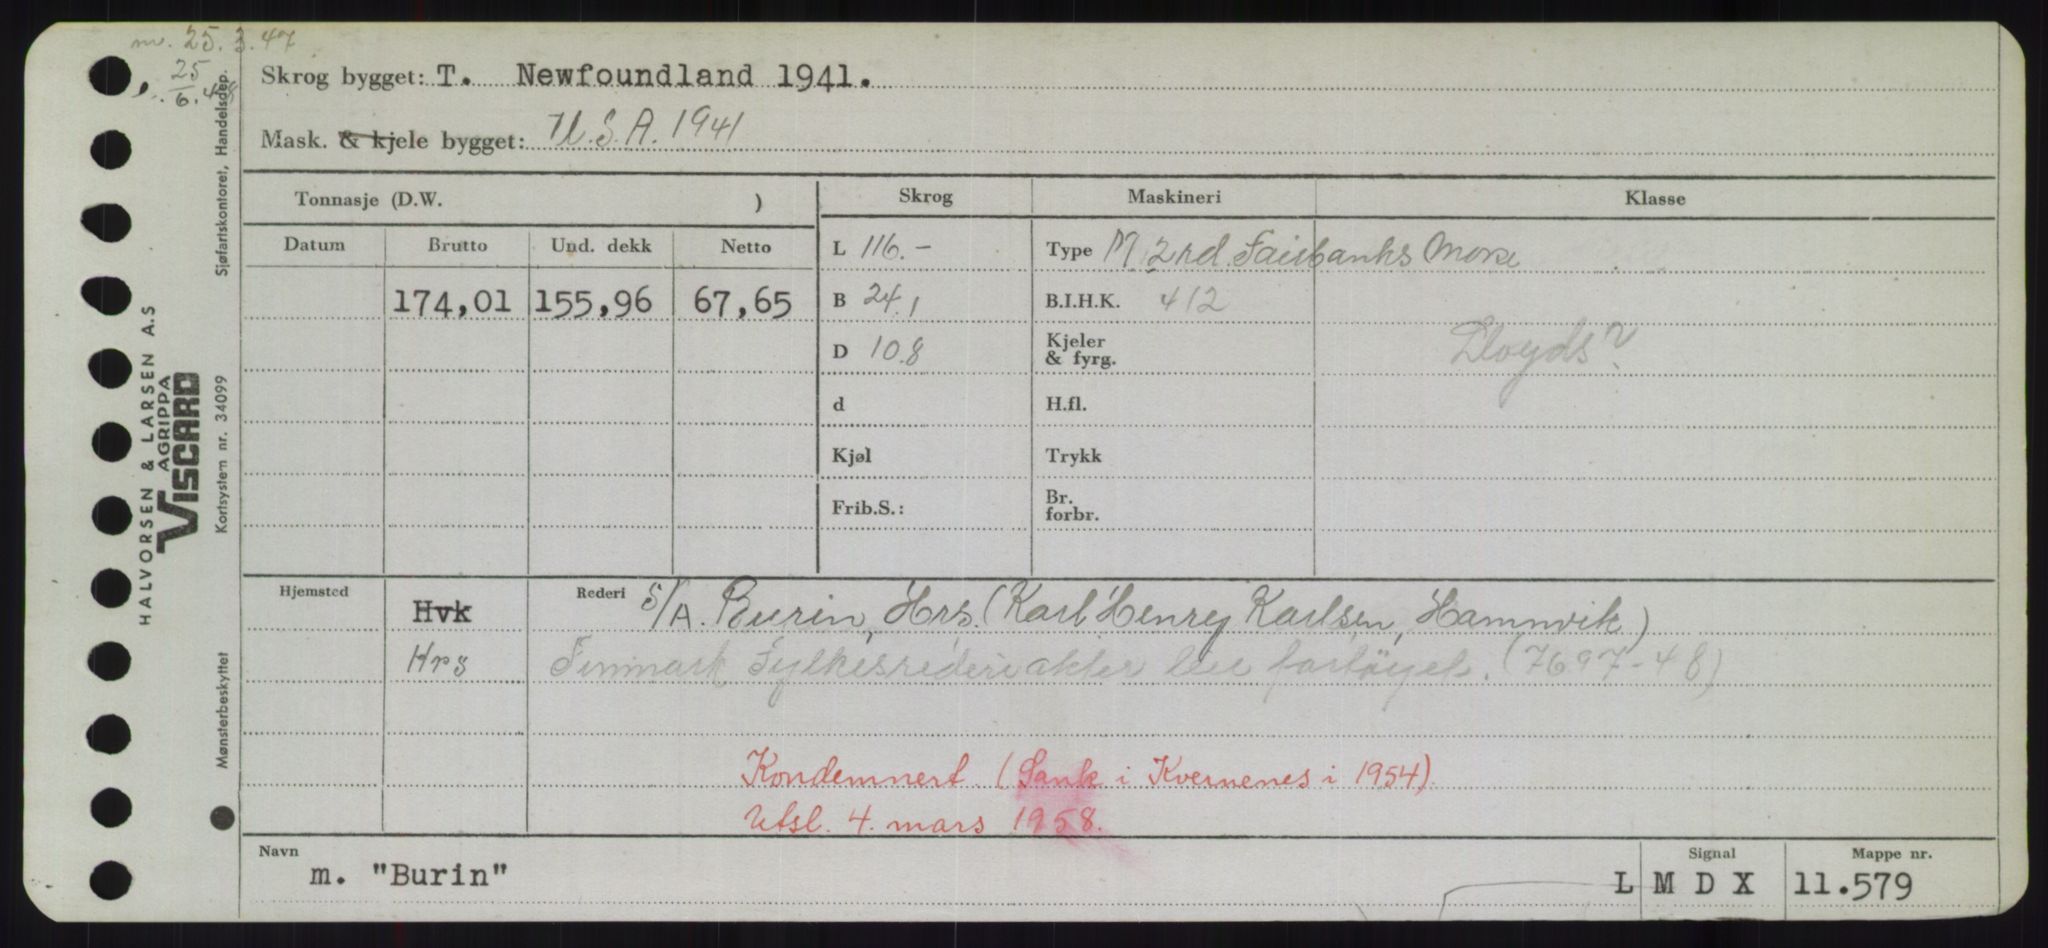 m. 25.3.47
25
6.48
Skrog bygget: T. Newfoundland 1941.
Mask. & kjele bygget: U.S.A. 1941
Tonnasje (D.W. )
Skrog
Maskineri
Klasse
Datum
Brutto
Und. dekk
Netto
L 116.-
Type M 2 rd. Fairbanks Morse
174,01 155,96 67,65
B 24,1
B.I.H.K. 412
D 10.8
Kjeler
& fyrg.
Lloyds?
d
H.fl.
Kjøl
Trykk
Frib.S.:
Br.
forbr.
Hjemsted
Hvk
Rederi S/A. Burin, Hrs. (Karl Henrey Karlsen, Hamnvik)
Hrs
Finnmark Fylkesrederi akter leie fartøyet. (7697-48)
Kondemnert. (Sank i Kvernenes i 1954).
Utsl. 4. mars 1958.
Navn
m. "Burin"
Signal
L M D X
Mappe nr.
11.579
HALVORSEN & LARSEN A.S
AGRIPPA
VISCARD
Sjøfartskontoret, Handelsdep.
Kortsystem nr. 34099
Mønsterbeskyttet